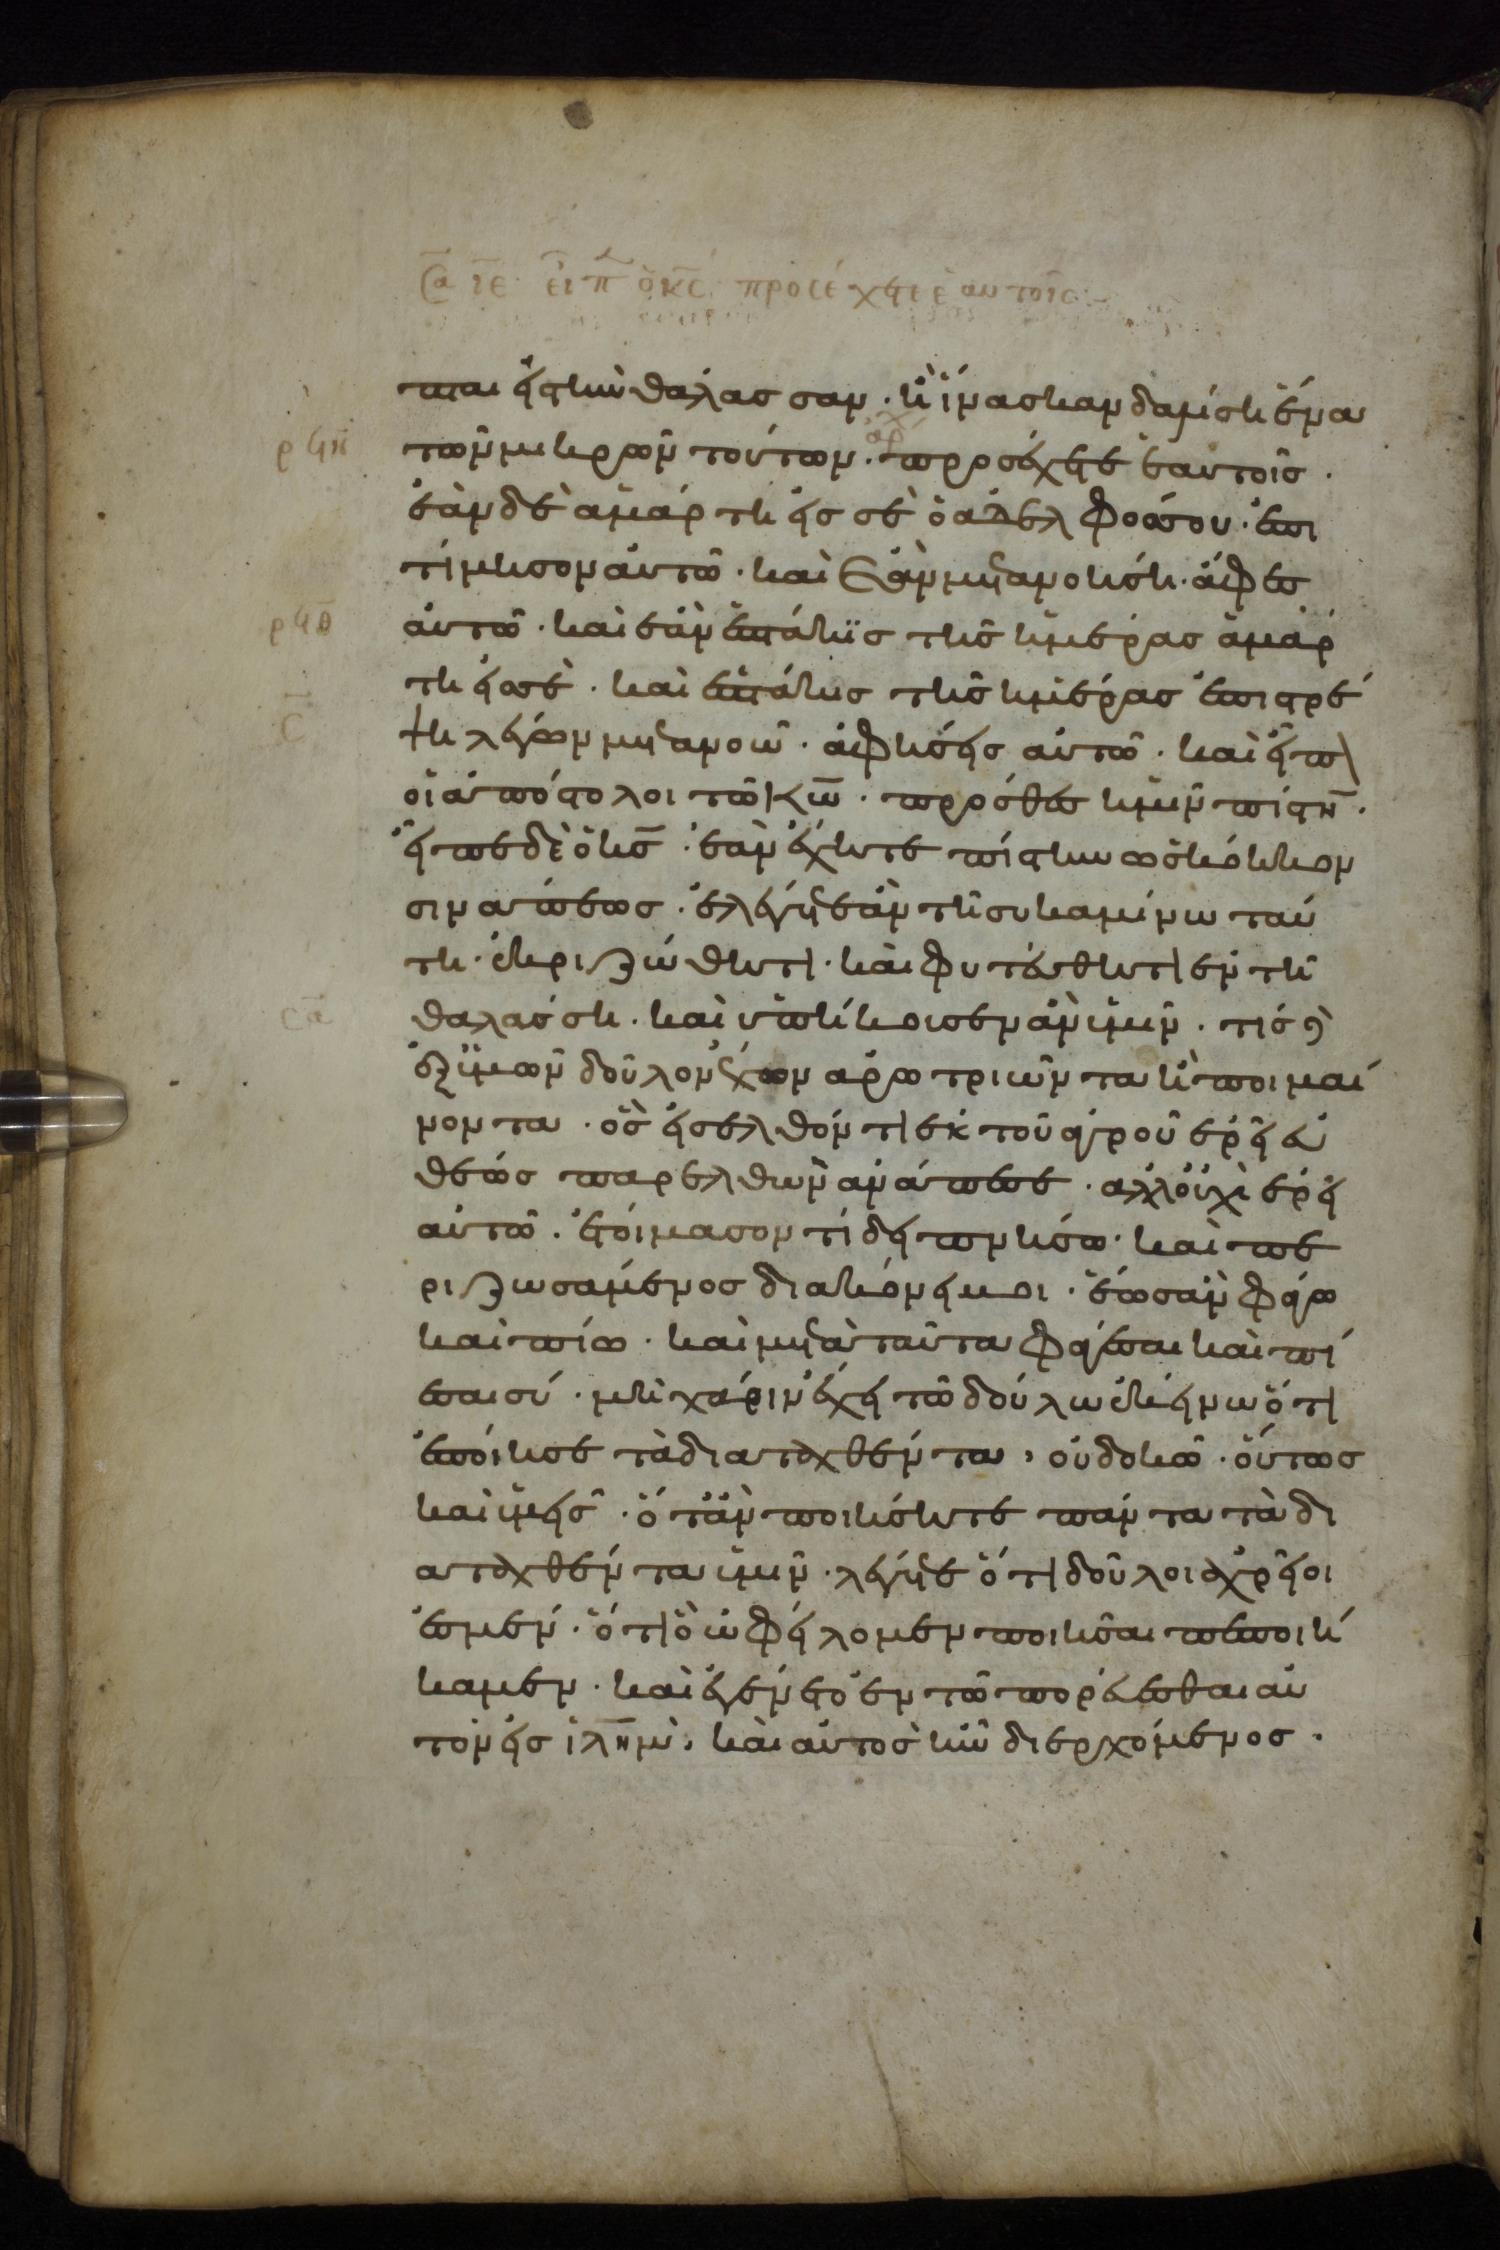 Σα ιε ειπ ὁ κς προσέχετε ἑαυτοῖς
ται εἰς τὴν θάλασσαν· ἢ ἵνα σκανδαλίση ἕνα
ρϟη
τῶν μικρῶν τούτων· ἀρχ προσέχετε ἑαυτοῖς·
ἐὰν δὲ ἁμάρτη εἰς σὲ ὁ ἀδελφός σου· ἐπι
τίμησον αὐτῶ· καὶ ἐὰν μετανοήση· ἄφες
ρϟθ
αὐτῶ· καὶ ἐὰν ἑπτάκϊς τῆς ἡμέρας ἁμάρ
τη εἰς σὲ· καὶ ἑπτάκις τῆς ἡμέρας ἐπιστρέ
σ
ψη λέγων μετανοῶ· ἀφήσεις αὐτῶ· καὶ εἶπ
οἱ ἀπόστολοι τῶ κω· πρόσθες ἡμῖν πίστιν·
εἶπε δὲ ὁ κς· ἐὰν ἔχητε πίστιν ὡς κόκκον
σινάπεως· ἐλέγετε ἂν τῆ συκαμίνω ταύ
τη· ἐκριζώθητι· καὶ φυτεύθητι ἐν τῆ
σα
θαλάσση· καὶ ὑπήκουσεν ἂν ὑμῖν· τίς δὲ
ἐξ ὑμῶν δοῦλον ἔχων ἀροτριῶντα ἢ ποιμαί
νοντα· ὃς εἰσελθόντι ἐκ τοῦ ἀγροῦ ἐρεῖ εὐ
θέως παρελθὼν ἀνάπεσε· ἀλλ' οὐχὶ ἐρεῖ
αὐτῶ· ἑτοίμασον τί δειπνήσω· καὶ πε
ριζωσάμενος διακόνει μοι· ἕως ἂν φάγω
καὶ πίω· καὶ μετὰ ταῦτα φάγεσαι καὶ πί
εσαι σύ· μὴ χάριν ἔχει τῶ δούλω ἐκείνω ὅτι
ἐποίησε τὰ διαταχθέντα, οὐ δοκῶ· οὕτως
καὶ ὑμεῖς· ὅταν ποιήσητε πάντα τὰ δι
αταχθέντα ὑμῖν· λέγετε ὅτι δοῦλοι ἀχρεῖοι
ἐσμέν· ὅτι ὃ ὠφείλομεν ποιῆσαι πεποιή
καμεν· καὶ ἐγένετο ἐν τῶ πορεύεσθαι αὐ
τὸν εἰς ἱλημ· καὶ αὐτὸς ἦν διερχόμενος·